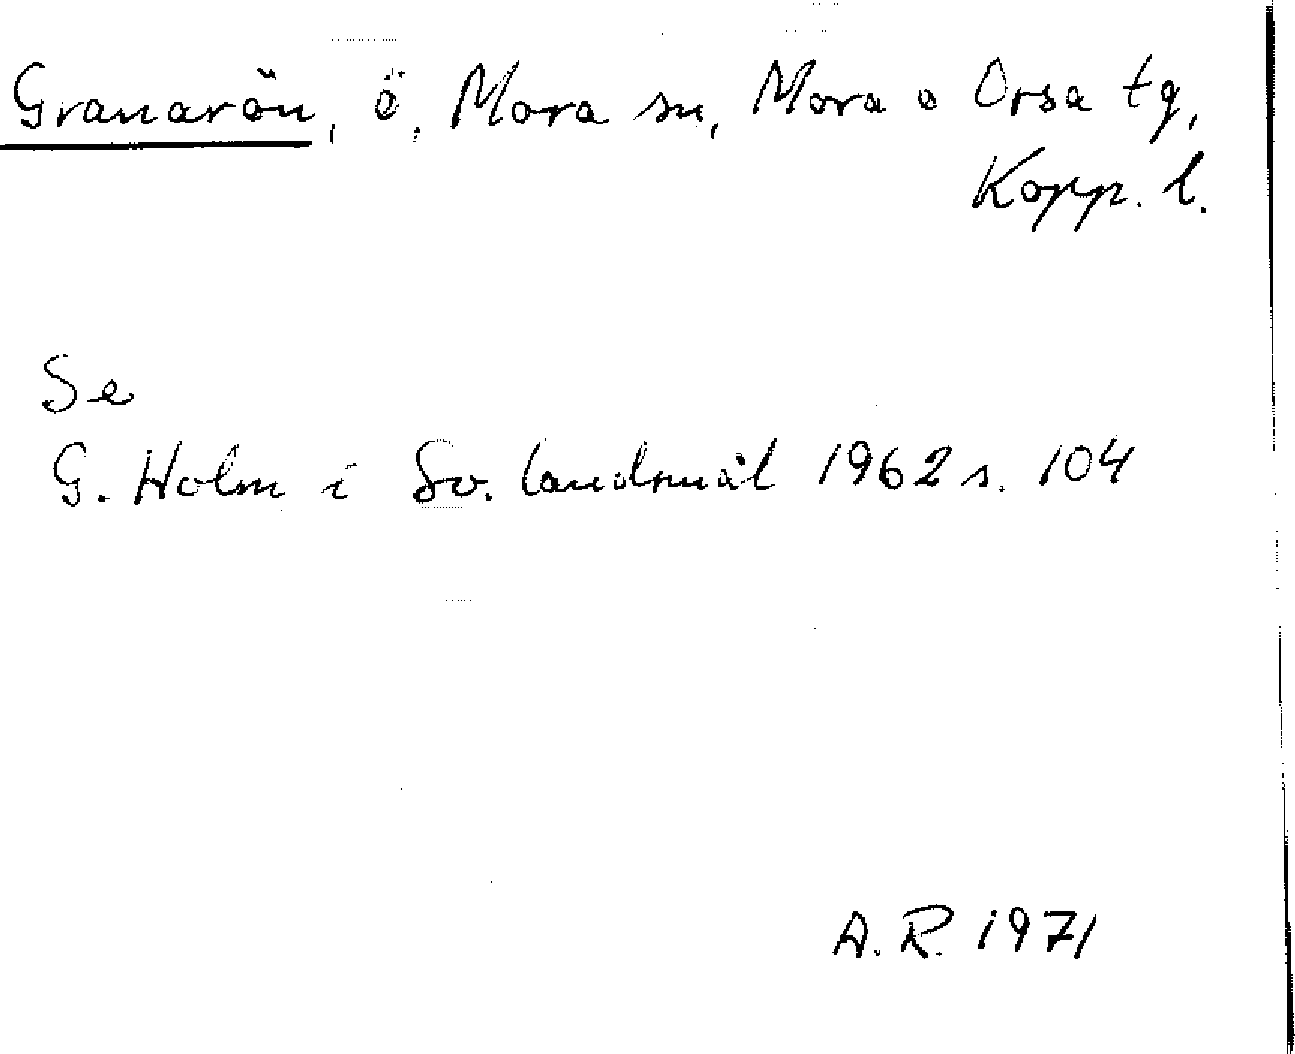 Granarön, ö, Mora sn, Mora o Orsa tg,
Kopp. l.
Se
G. Holm i Sv. landsmål 1962 s. 104
A. R. 1971